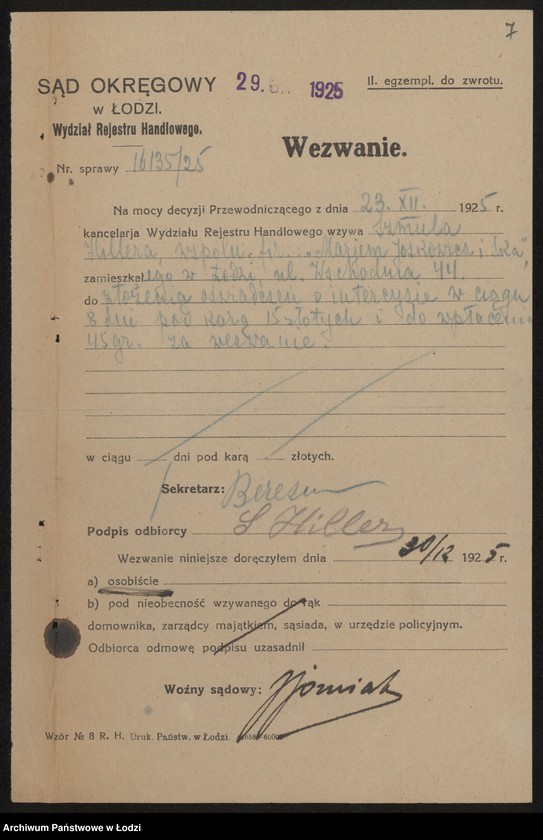 7
SĄD OKRĘGOWY
w ŁODZI.
Wydział Rejestru Handlowego,
29. 1925
II. egzempl. do zwrotu.
Wezwanie.
Nr. sprawy 16135/25
Na mocy decyzji Przewodniczącego z dnia 23. XII. 1925 r.
kancelarja Wydziału Rejestru Handlowego wzywa Szmula
Hillera, wspóln. fir. „Marjem Joskowicz i S-ka",
zamieszkałego w Łodzi ul. Wschodnia 44.
do złożenia oświadczeń o intercyzie w ciągu
8 dni pod karą 15 złotych i do wpłacenia
45 gr. za wezwanie.
w ciągu dni pod karą złotych.
Sekretarz:
Podpis odbiorcy S Hiller
Wezwanie niniejsze doręczyłem dnia 30/12 1925 r.
a) osobiście
b) pod nieobecność wzywanego do rąk
domownika, zarządcy majątkiem, sąsiada, w urzędzie policyjnym.
Odbiorca odmowę podpisu uzasadnił
Woźny sądowy:
Wzór № 8 R. H. Druk. Państw. w Łodzi.
Archiwum Państwowe w Łodzi